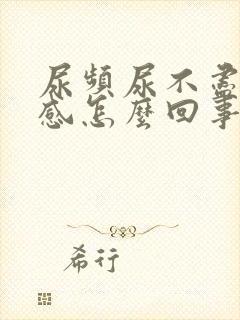 尿頻尿不盡
感怎麼回事
希行